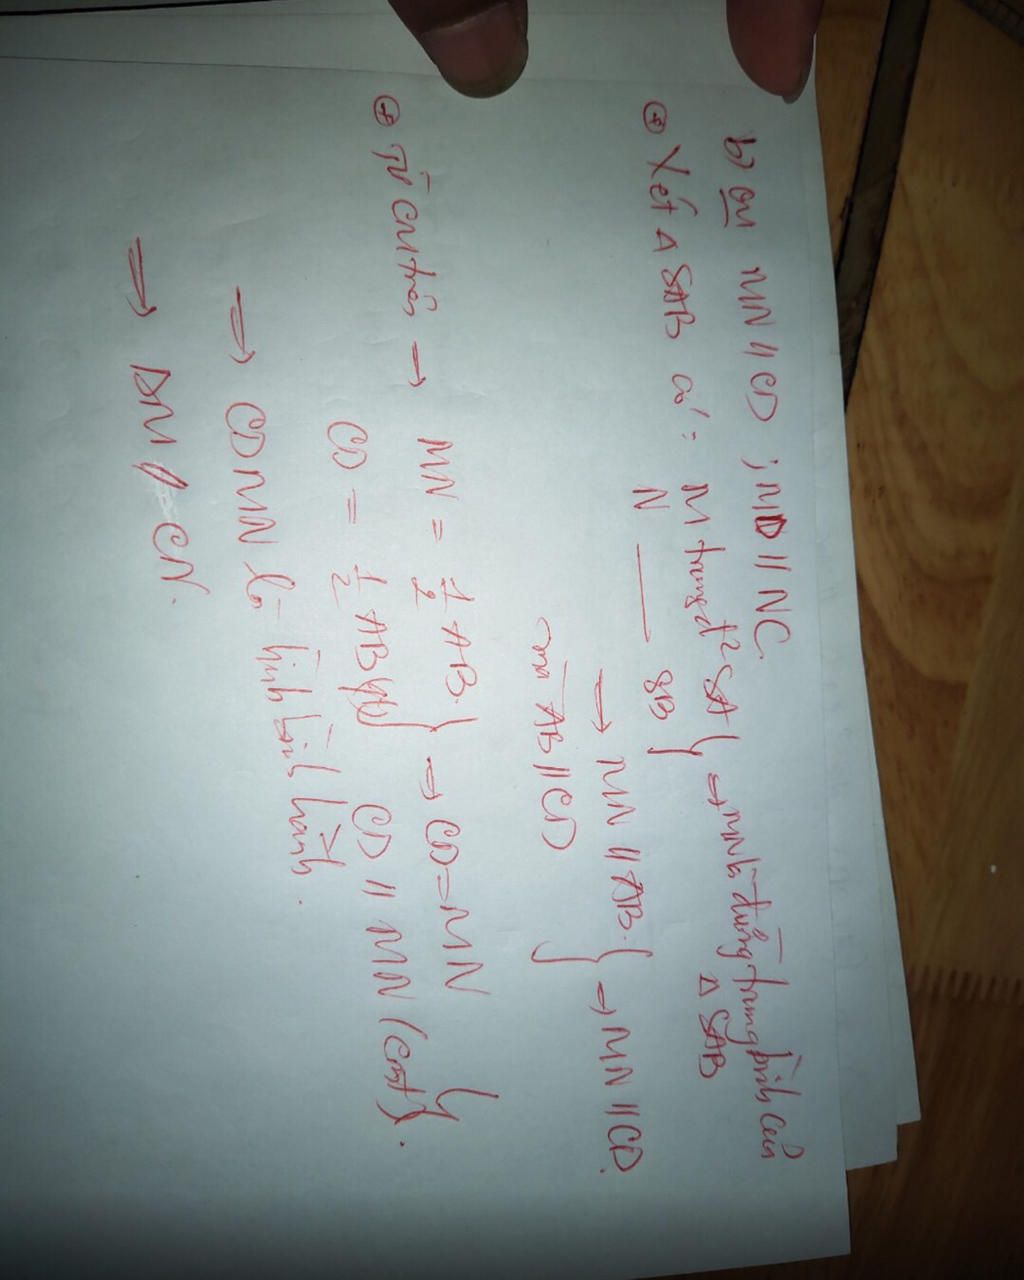 b) CM MN // CD ; MD // NC.
⊕ Xét Δ SAB có : M trung đ² SA } → MN là đường trung bình của
N —— SB } Δ SAB
→ MN // AB. } → MN // CD.
mà AB // CD }
⊕ Từ cmtrên → MN = 1/2 AB. } → CD = MN }
CD = 1/2 AB } CD // MN (cmt) }.
→ CDMN là hình bình hành.
→ DM // CN.